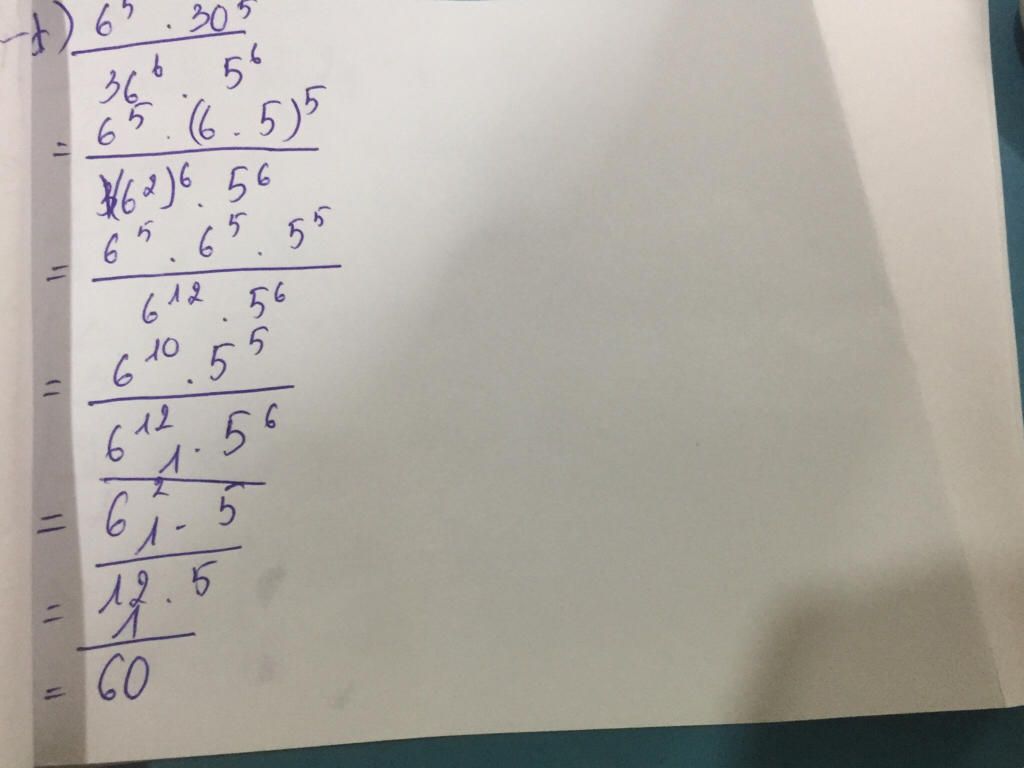 f) 6^5 . 30^5
36^6 . 5^6
= 6^5 . (6 . 5)^5
(6^2)^6 . 5^6
= 6^5 . 6^5 . 5^5
6^12 . 5^6
= 6^10 . 5^5
6^12 . 5^6
1
= 6^2 . 5
1
= 12 . 5
1
= 60